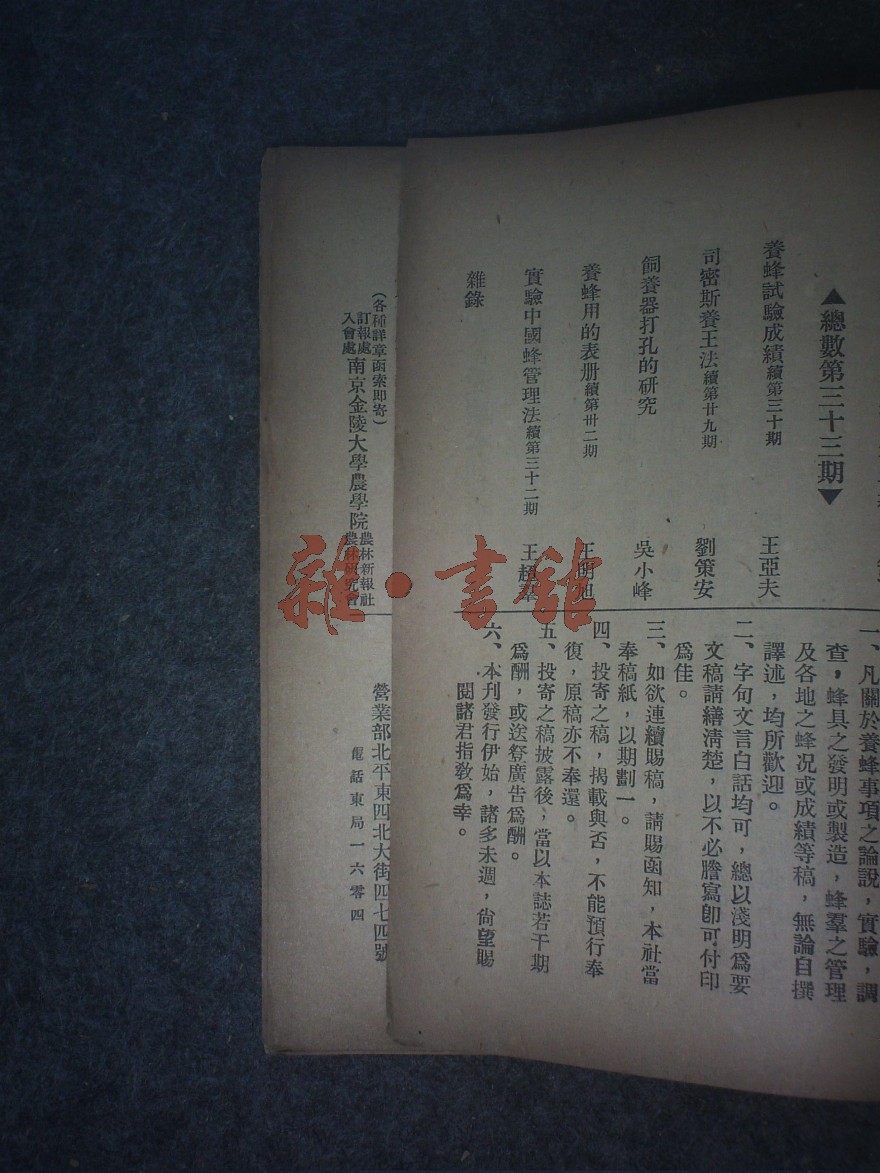 ▲總數第三十三期▼
養蜂試驗成績續第三十期 王亞夫
司密斯養王法續第廿九期 劉策安
飼養器打孔的研究 吳小峰
養蜂用的表册續第卅二期 王明旭
實驗中國蜂管理法續第三十二期 王超羣
雜錄
一、凡關於養蜂事項之論說，實驗，調
查，蜂具之發明或製造，蜂羣之管理
及各地之蜂况或成績等稿，無論自撰
譯述，均所歡迎。
二、字句文言白話均可，總以淺明爲要
文稿請繕清楚，以不必謄寫卽可付印
爲佳。
三、如欲連續賜稿，請賜函知，本社當
奉稿紙，以期劃一。
四、投寄之稿，揭載與否，不能預行奉
復，原稿亦不奉還。
五、投寄之稿披露後，當以本誌若干期
爲酬，或送登廣告爲酬。
六、本刊發行伊始，諸多未週，尙望賜
閱諸君指敎爲幸。
(各種詳章函索即寄)
訂報處
入會處
南京金陵大學農學院
農林新報社
農林研究會
營業部北平東四北大街四七四號
電話東局一六零四
雜·書館